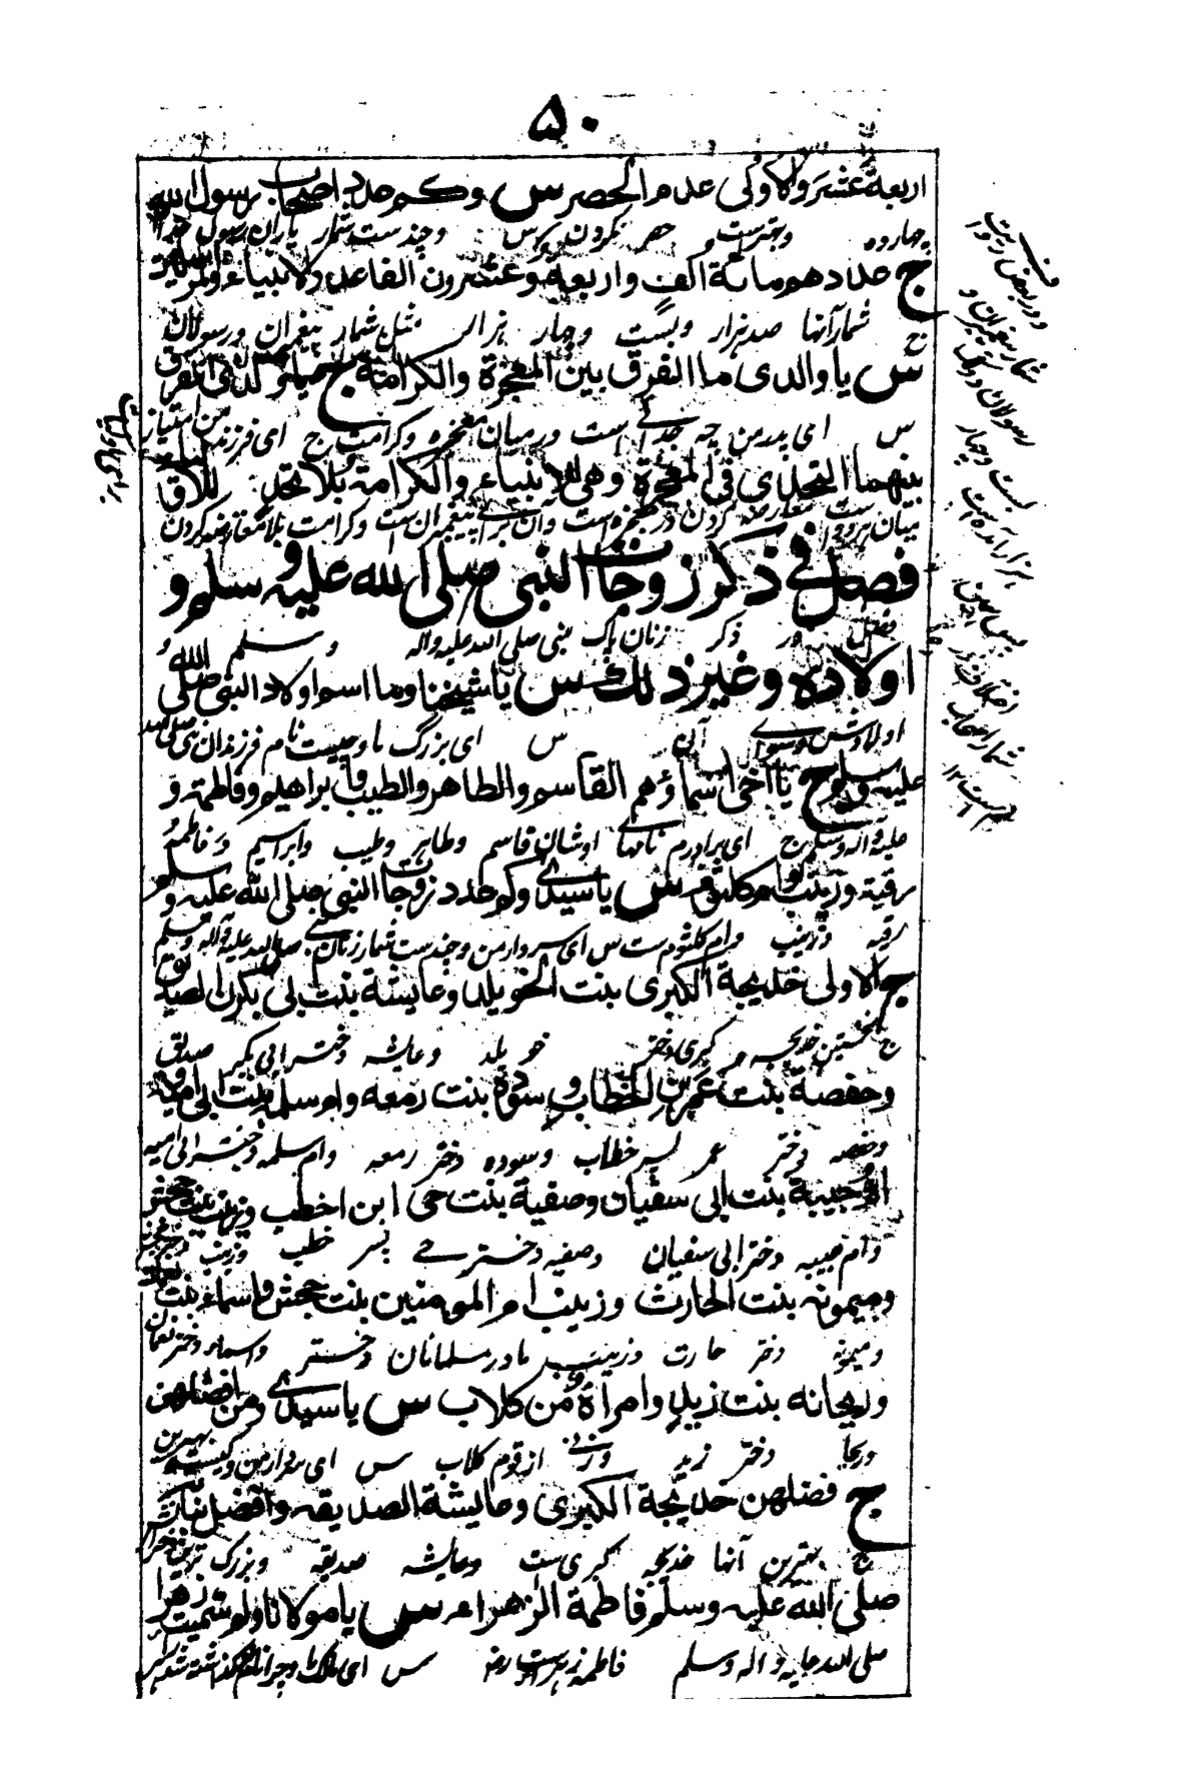 ۵۰
اربعة عشر والاولى عدم الحصر س وكم عدد اصحاب رسول الله
چهارده وبهترست حصر نکردن پرس وچند ست شمار یاران رسول خدا
ج عددهم مائة الف واربعة وعشرون الفا عدد الانبياء والمرسلين
شمار آنها صد هزار وبست وچهار هزار مثل شمار پیغمبران ورسولان
س يا والدى ما الفرق بين المعجزة والكرامة ج يا ولدى الفرق
س ای پدر من چه جدائی ست درمیان معجزه وکرامت ج ای فرزند من امتیاز
بينهما التحدى فى المعجزة وهى للانبياء والكرامة بلا تحد
میان هر دو معارضه کردن در معجزه است وآن برای پیغمبران ست وکرامت بلا معارضه کردن
فصل فى ذكر زوجات النبى صلى الله عليه وسلم و
فصل در ذکر زنان پاک نبی صلی الله علیه واله وسلم و
اولاده وغير ذلك س يا شيخنا وما اسم اولاد النبى صلى الله
اولادش وسوای آن س ای بزرگ ما وچیست نام فرزندان نبی صلی الله
عليه وسلم ج يا اخى اسماؤهم القاسم والطاهر والطيب وابراهيم وفاطمة و
علیه واله وسلم ج ای برادرم نامهای اوشان قاسم وطاهر وطیب وابراهیم وفاطمه
رقية وزينب وام كلثوم س يا سيدى وكم عدد زوجات النبى صلى الله عليه وسلم
رقیه وزینب وام کلثوم ست س ای سردار من وچند ست شمار زنان نبی صلی الله علیه واله وسلم
ج الاولى خديجة الكبرى بنت الخويلد وعايشة بنت ابى بكر الصديق
ج نخستین خدیجه کبری دختر خویلد وعایشه دختر ابی بکر صدیق
وحفصة بنت عمر بن الخطاب وسودة بنت رمعه وام سلمة بنت ابى امية
وحفصه دختر عمر پسر خطاب وسوده دختر رمعه وام سلمه دختر ابی امیه
ام حبيبة بنت ابى سفيان وصفية بنت حى ابن اخطب وزينب بنت جحش
وام حبیبه دختر ابی سفیان وصفیه دختر حی پسر خطب وزینب دختر جحش
وميمونه بنت الحارث وزينب ام المومنين بنت جحش واسماء بنت
ومیمونه دختر حارث وزینب مادر مسلمانان دختر واسماء دختر نعمان
وريحانه بنت زيد وامرأة من كلاب س يا سيدى ومن افضلهن
دختر زید وزنی از قوم کلاب س ای سردار من وکیست بهترین
ج فضلهن خديجة الكبرى وعايشة الصديقه وافضل بناته
ج بهترین آنها خدیجه کبری ست وعایشه صدیقه وبزرگ ترین دختران
صلى الله عليه وسلم فاطمة الزهراء س يا مولانا ولم سميت زهرا
صلی الله علیه واله وسلم فاطمه زهرا ست س ای مالک ما وچرا نام گذاشته شد
ودر بعض روایت
شمار پیغمبران و